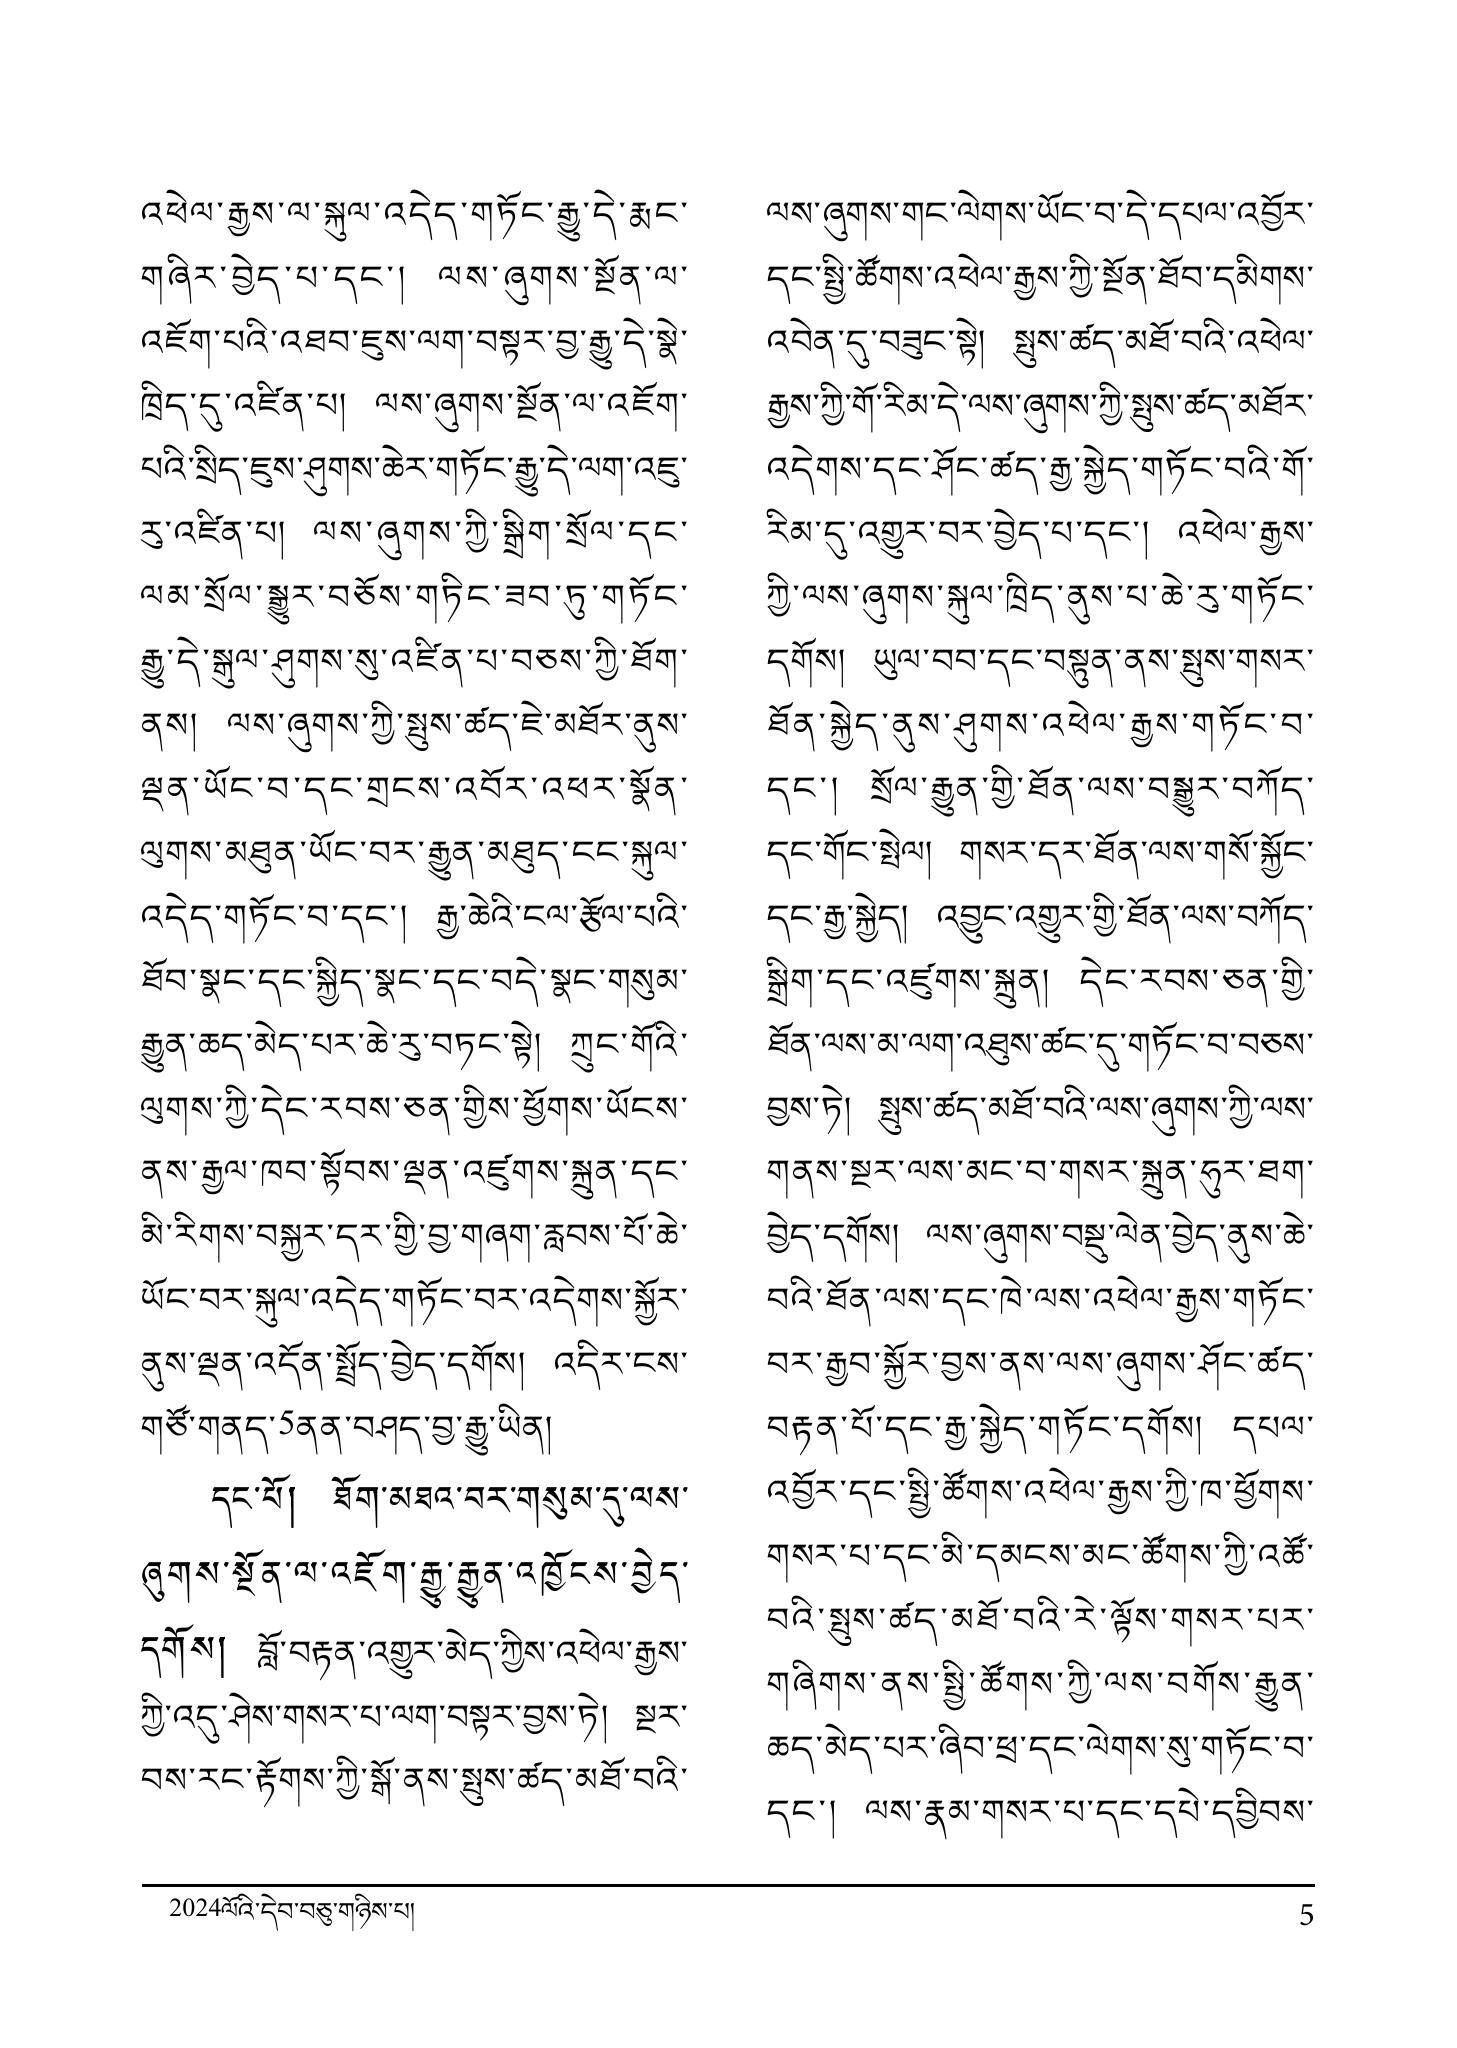 འཕེལ་རྒྱས་ལ་སྐུལ་འདེད་གཏོང་རྒྱུ་དེ་རྨང་
གཞིར་བྱེད་པ་དང་།  ལས་ཞུགས་སྔོན་ལ་
འཇོག་པའི་འཐབ་ཇུས་ལག་བསྟར་བྱ་རྒྱུ་དེ་སྣེ་
ཁྲིད་དུ་འཛིན་པ།  ལས་ཞུགས་སྔོན་ལ་འཇོག་
པའི་སྲིད་ཇུས་ཤུགས་ཆེར་གཏོང་རྒྱུ་དེ་ལག་འཇུ་
རུ་འཛིན་པ།  ལས་ཞུགས་ཀྱི་སྒྲིག་སྲོལ་དང་
ལམ་སྲོལ་སྒྱུར་བཅོས་གཏིང་ཟབ་ཏུ་གཏོང་
རྒྱུ་དེ་སྒུལ་ཤུགས་སུ་འཛིན་པ་བཅས་ཀྱི་ཐོག་
ནས།  ལས་ཞུགས་ཀྱི་སྤུས་ཚད་ཇེ་མཐོར་ནུས་
ལྡན་ཡོང་བ་དང་གྲངས་འབོར་འཕར་སྣོན་
ལུགས་མཐུན་ཡོང་བར་རྒྱུན་མཐུད་ངང་སྐུལ་
འདེད་གཏོང་བ་དང་།  རྒྱ་ཆེའི་ངལ་རྩོལ་པའི་
ཐོབ་སྣང་དང་སྐྱིད་སྣང་དང་བདེ་སྣང་གསུམ་
རྒྱུན་ཆད་མེད་པར་ཆེ་རུ་བཏང་སྟེ།  ཀྲུང་གོའི་
ལུགས་ཀྱི་དེང་རབས་ཅན་གྱིས་ཕྱོགས་ཡོངས་
ནས་རྒྱལ་ཁབ་སྟོབས་ལྡན་འཛུགས་སྐྲུན་དང་
མི་རིགས་བསྐྱར་དར་གྱི་བྱ་གཞག་རླབས་པོ་ཆེ་
ཡོང་བར་སྐུལ་འདེད་གཏོང་བར་འདེགས་སྐྱོར་
ནུས་ལྡན་འདོན་སྤྲོད་བྱེད་དགོས།  འདིར་ངས་
གཙོ་གནད་5ནན་བཤད་བྱ་རྒྱུ་ཡིན།
དང་པོ།  ཐོག་མཐའ་བར་གསུམ་དུ་ལས་
ཞུགས་སྔོན་ལ་འཇོག་རྒྱུ་རྒྱུན་འཁྱོངས་བྱེད་
དགོས།  བློ་བརྟན་འགྱུར་མེད་ཀྱིས་འཕེལ་རྒྱས་
ཀྱི་འདུ་ཤེས་གསར་པ་ལག་བསྟར་བྱས་ཏེ།  སྔར་
བས་རང་རྟོགས་ཀྱི་སྒོ་ནས་སྤུས་ཚད་མཐོ་བའི་
ལས་ཞུགས་གང་ལེགས་ཡོང་བ་དེ་དཔལ་འབྱོར་
དང་སྤྱི་ཚོགས་འཕེལ་རྒྱས་ཀྱི་སྔོན་ཐོབ་དམིགས་
འབེན་དུ་བཟུང་སྟེ།  སྤུས་ཚད་མཐོ་བའི་འཕེལ་
རྒྱས་ཀྱི་གོ་རིམ་དེ་ལས་ཞུགས་ཀྱི་སྤུས་ཚད་མཐོར་
འདེགས་དང་ཤོང་ཚད་རྒྱ་སྐྱེད་གཏོང་བའི་གོ་
རིམ་དུ་འགྱུར་བར་བྱེད་པ་དང་།  འཕེལ་རྒྱས་
ཀྱི་ལས་ཞུགས་སྐུལ་ཁྲིད་ནུས་པ་ཆེ་རུ་གཏོང་
དགོས།  ཡུལ་བབ་དང་བསྟུན་ནས་སྤུས་གསར་
ཐོན་སྐྱེད་ནུས་ཤུགས་འཕེལ་རྒྱས་གཏོང་བ་
དང་།  སྲོལ་རྒྱུན་གྱི་ཐོན་ལས་བསྒྱུར་བཀོད་
དང་གོང་སྤེལ།  གསར་དར་ཐོན་ལས་གསོ་སྐྱོང་
དང་རྒྱ་སྐྱེད།  འབྱུང་འགྱུར་གྱི་ཐོན་ལས་བཀོད་
སྒྲིག་དང་འཛུགས་སྐྲུན།  དེང་རབས་ཅན་གྱི་
ཐོན་ལས་མ་ལག་འཐུས་ཚང་དུ་གཏོང་བ་བཅས་
བྱས་ཏེ།  སྤུས་ཚད་མཐོ་བའི་ལས་ཞུགས་ཀྱི་ལས་
གནས་སྔར་ལས་མང་བ་གསར་སྐྲུན་ཧུར་ཐག་
བྱེད་དགོས།  ལས་ཞུགས་བསྡུ་ལེན་བྱེད་ནུས་ཆེ་
བའི་ཐོན་ལས་དང་ཁེ་ལས་འཕེལ་རྒྱས་གཏོང་
བར་རྒྱབ་སྐྱོར་བྱས་ནས་ལས་ཞུགས་ཤོང་ཚད་
བརྟན་པོ་དང་རྒྱ་སྐྱེད་གཏོང་དགོས།  དཔལ་
འབྱོར་དང་སྤྱི་ཚོགས་འཕེལ་རྒྱས་ཀྱི་ཁ་ཕྱོགས་
གསར་པ་དང་མི་དམངས་མང་ཚོགས་ཀྱི་འཚོ་
བའི་སྤུས་ཚད་མཐོ་བའི་རེ་ལྟོས་གསར་པར་
གཞིགས་ནས་སྤྱི་ཚོགས་ཀྱི་ལས་བགོས་རྒྱུན་
ཆད་མེད་པར་ཞིབ་ཕྲ་དང་ལེགས་སུ་གཏོང་བ་
དང་།  ལས་རྣམ་གསར་པ་དང་དཔེ་དབྱིབས་
2024ལོའི་དེབ་བཅུ་གཉིས་པ།
5